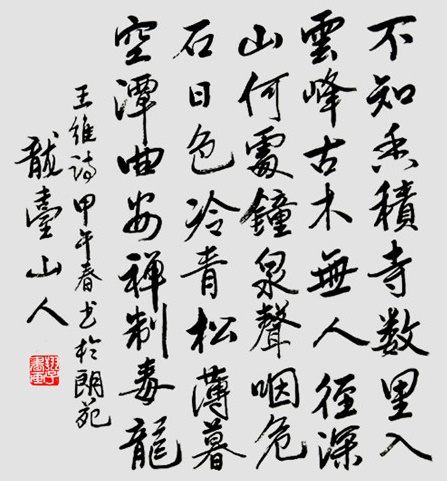 不知香積寺数里入
雲峰古木無人徑深
山何處鐘泉聲咽危
石日色冷青松薄暮
空潭曲安禅制毒龍
王維詩甲午春书於朗苑
龍臺山人